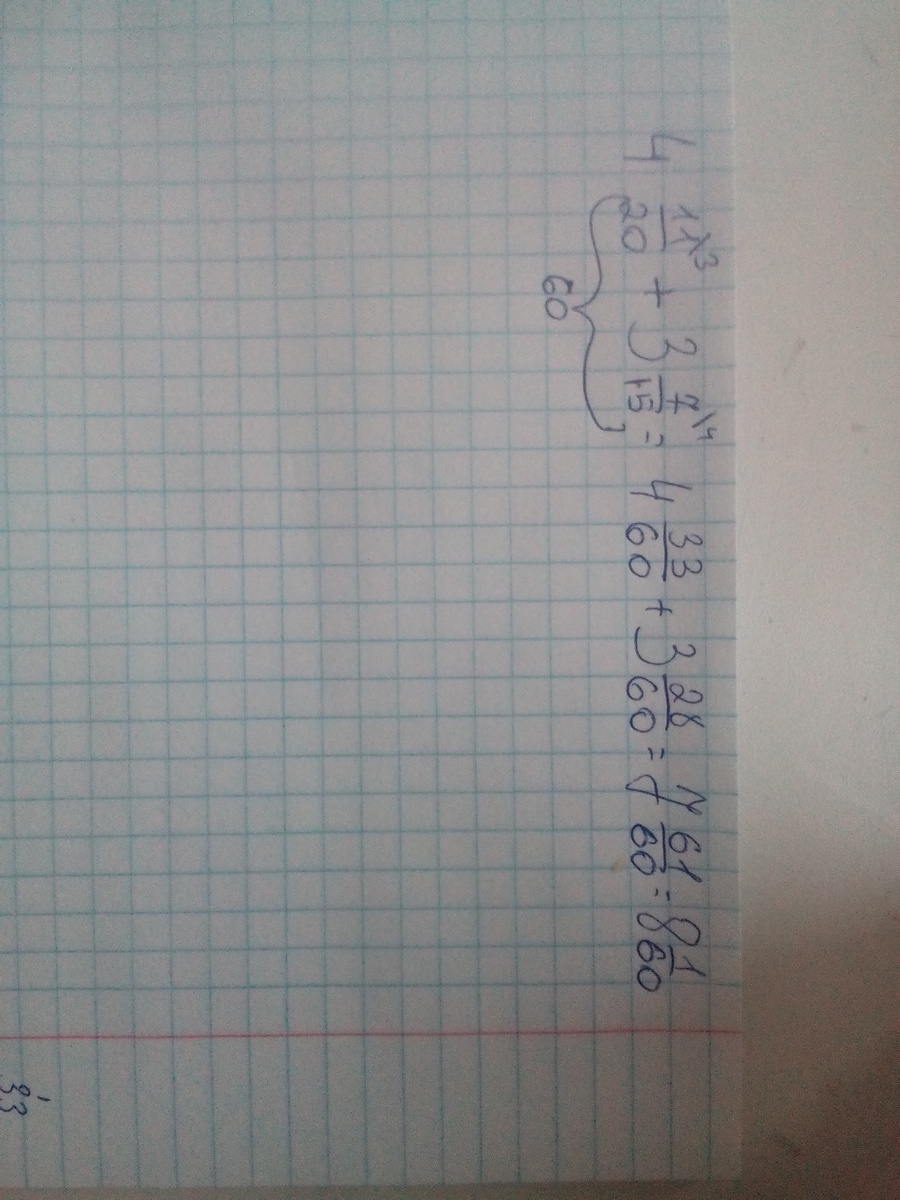 4 11\3/20 + 3 7\4/15 = 4 33/60 + 3 28/60 = 7 61/60 = 8 1/60
60
33